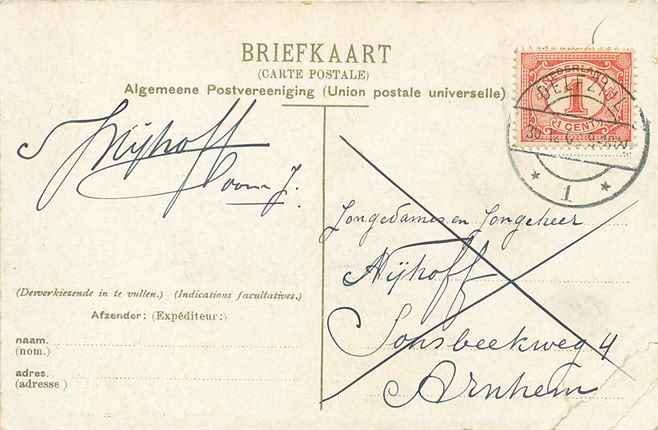 BRIEFKAART
(CARTE POSTALE)
Algemeene Postvereeniging (Union postale universelle)
NEDERLAND
1
1 CENT
DELFZ
30 12
1
Nijhoff
Jongedames en Jongeheer
Nijhoff
Sonsbeekweg 4
Arnhem
(Desverkiezende in te vullen.) (Indications facultatives.)
Afzender: (Expéditeur:)
naam.
(nom.)
adres.
(adresse)